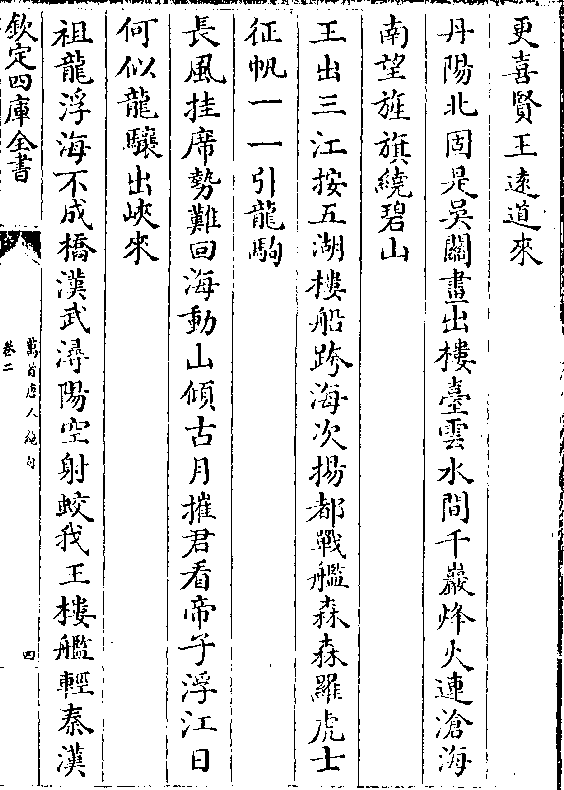 更喜賢王遠道來
丹陽北固是吳關畫出樓臺雲水間千巖烽火連滄海
南望旌旗繞碧山
王出三江按五湖樓船跨海次揚都戰艦森森羅虎士
征帆一一引龍駒
長風挂席勢難回海動山傾古月摧君看帝子浮江日
何似龍驤出峽來
祖龍浮海不成橋漢武潯陽空射蛟我王樓艦輕秦漢
欽定四庫全書
萬首唐人絶句
卷二
四